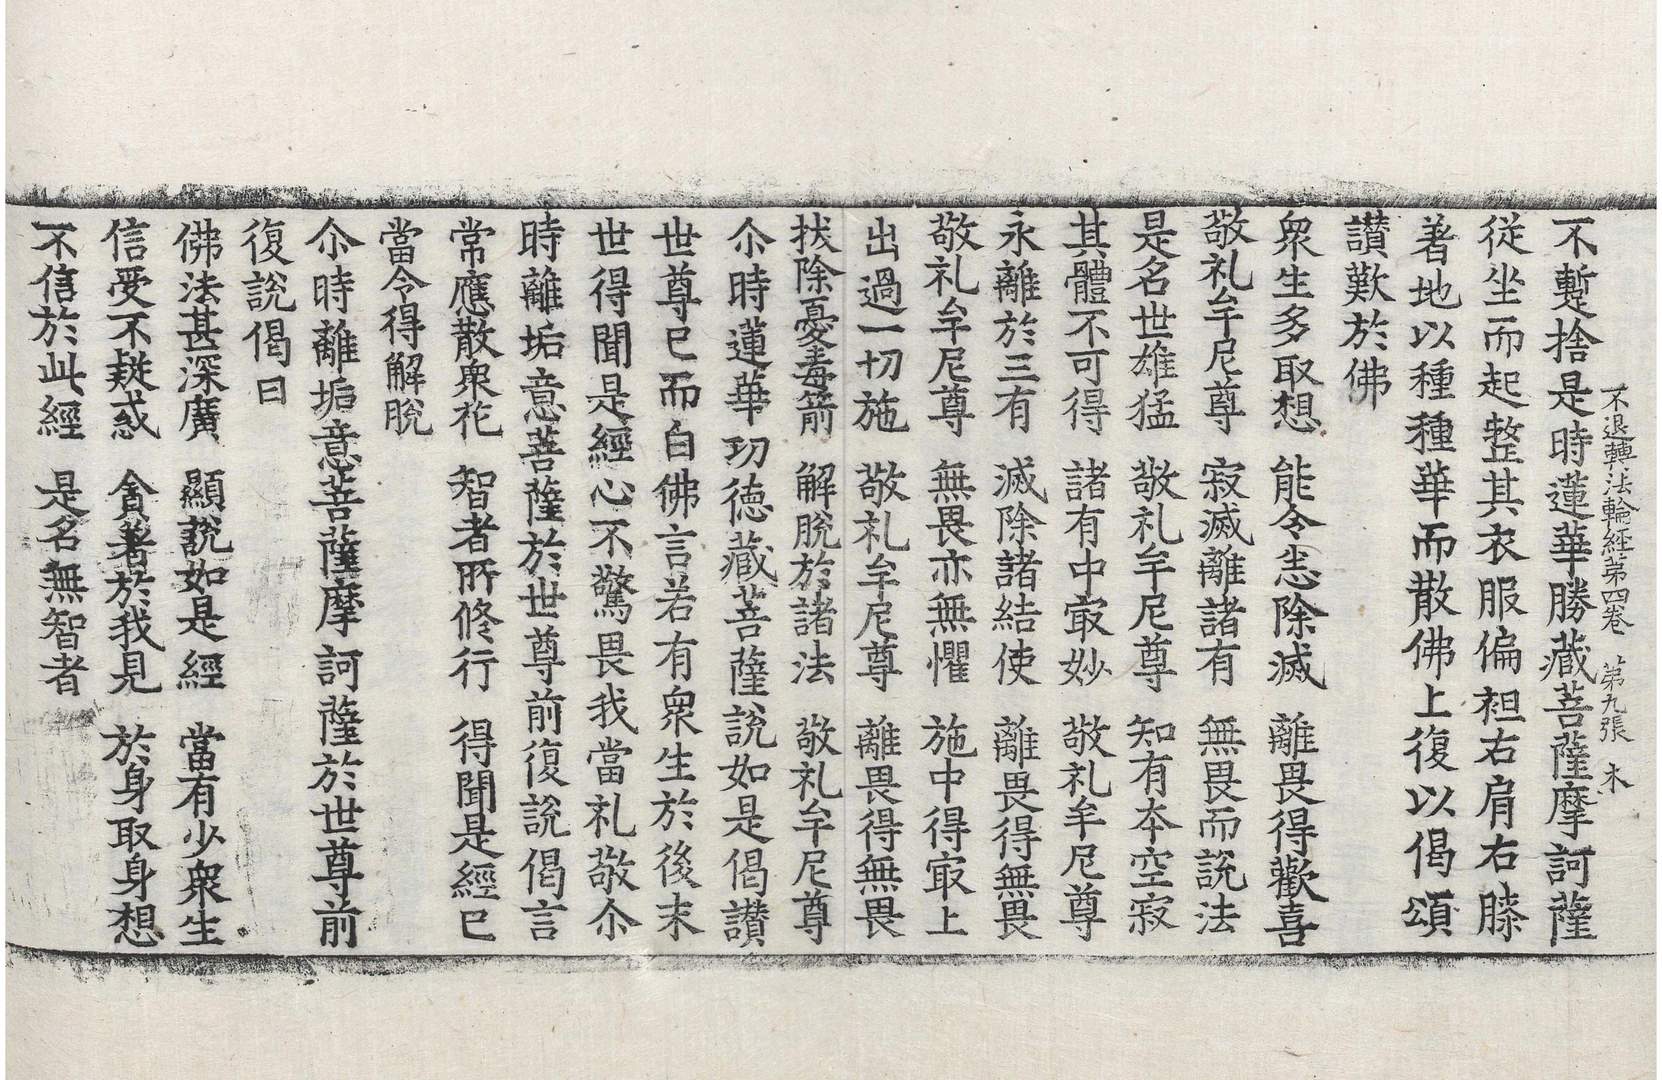 不退轉法輪經第四卷　第九張　木
不蹔捨是時蓮華勝藏菩薩摩訶薩
從坐而起整其衣服偏袒右肩右膝
著地以種種華而散佛上復以偈頌
讃歎於佛
衆生多取想　能令恚除滅　離畏得歡喜
敬礼牟尼尊　寂滅離諸有　無畏而説法
是名世雄猛　敬礼牟尼尊　知有本空寂
其體不可得　諸有中㝡妙　敬礼牟尼尊
永離於三有　滅除諸結使　離畏得無畏
敬礼牟尼尊　無畏亦無懼　施中得㝡上
出過一切施　敬礼牟尼尊　離畏得無畏
拔除憂毒箭　解脫於諸法　敬礼牟尼尊
尒時蓮華功德藏菩薩説如是偈讃
世尊已而白佛言若有衆生於後末
世得聞是經心不驚畏我當礼敬尒
時離垢意菩薩於世尊前復説偈言
常應散衆花　智者所修行　得聞是經已
當令得解脫
尒時離垢意菩薩摩訶薩於世尊前
復説偈曰
佛法甚深廣　顯說如是經　當有少衆生
信受不疑惑　貪著於我見　於身取身想
不信於此經　是名無智者